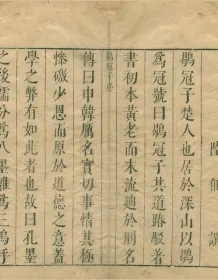 佃譔
鶡冠子楚人也居於深山以鶡
爲冠號曰鶡冠子其道踳駮著
書初本黃老而末流迪於刑名
鶡冠子序
傳曰申韓厲名實切事情其極
慘礉少恩而原於道德之意蓋
學之弊有如此者也故曰孔墨
之後儒分爲八墨離爲三嗚呼